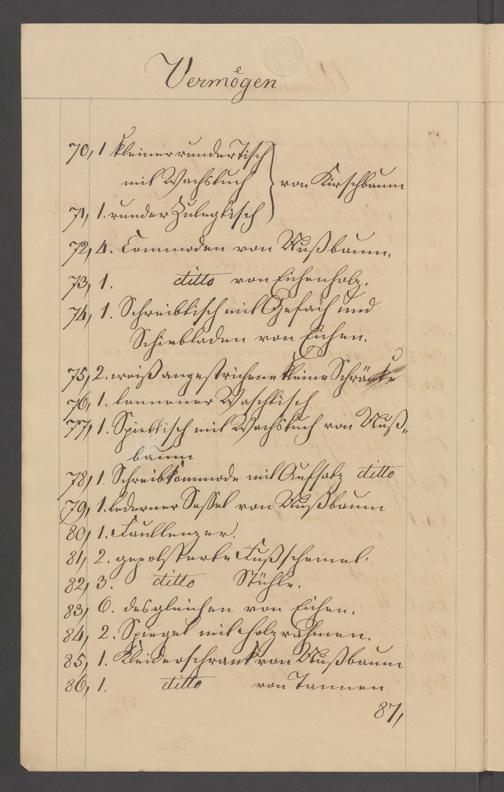 Vermögen
70, 1 kleiner runder Tisch
mit Wachstuch } von Kirschbaum
71, 1. runder Zulegtisch
72, 4. Commoden von Nußbaum.
73, 1. ditto von Eichenholz.
74, 1. Schreibtisch mit Gefach und
Schiebladen von Eichen.
75, 2. weiß angestrichene kleine Schränke
76, 1. tannener Waschtisch
77, 1. Spieltisch mit Wachstuch von Nuß-
baum
78, 1. Schreibkommode mit Aufsatz ditto
79, 1. lederner Sessel von Nußbaum
80, 1. Faullenzer.
81, 2. gepolsterte Fußschemel.
82, 3. ditto Stühle.
83, 6. desgleichen von Eichen.
84, 2. Spiegel mit Holzrahmen.
85, 1. Kleiderschrank von Nußbaum
86, 1. ditto von Tannen
87,